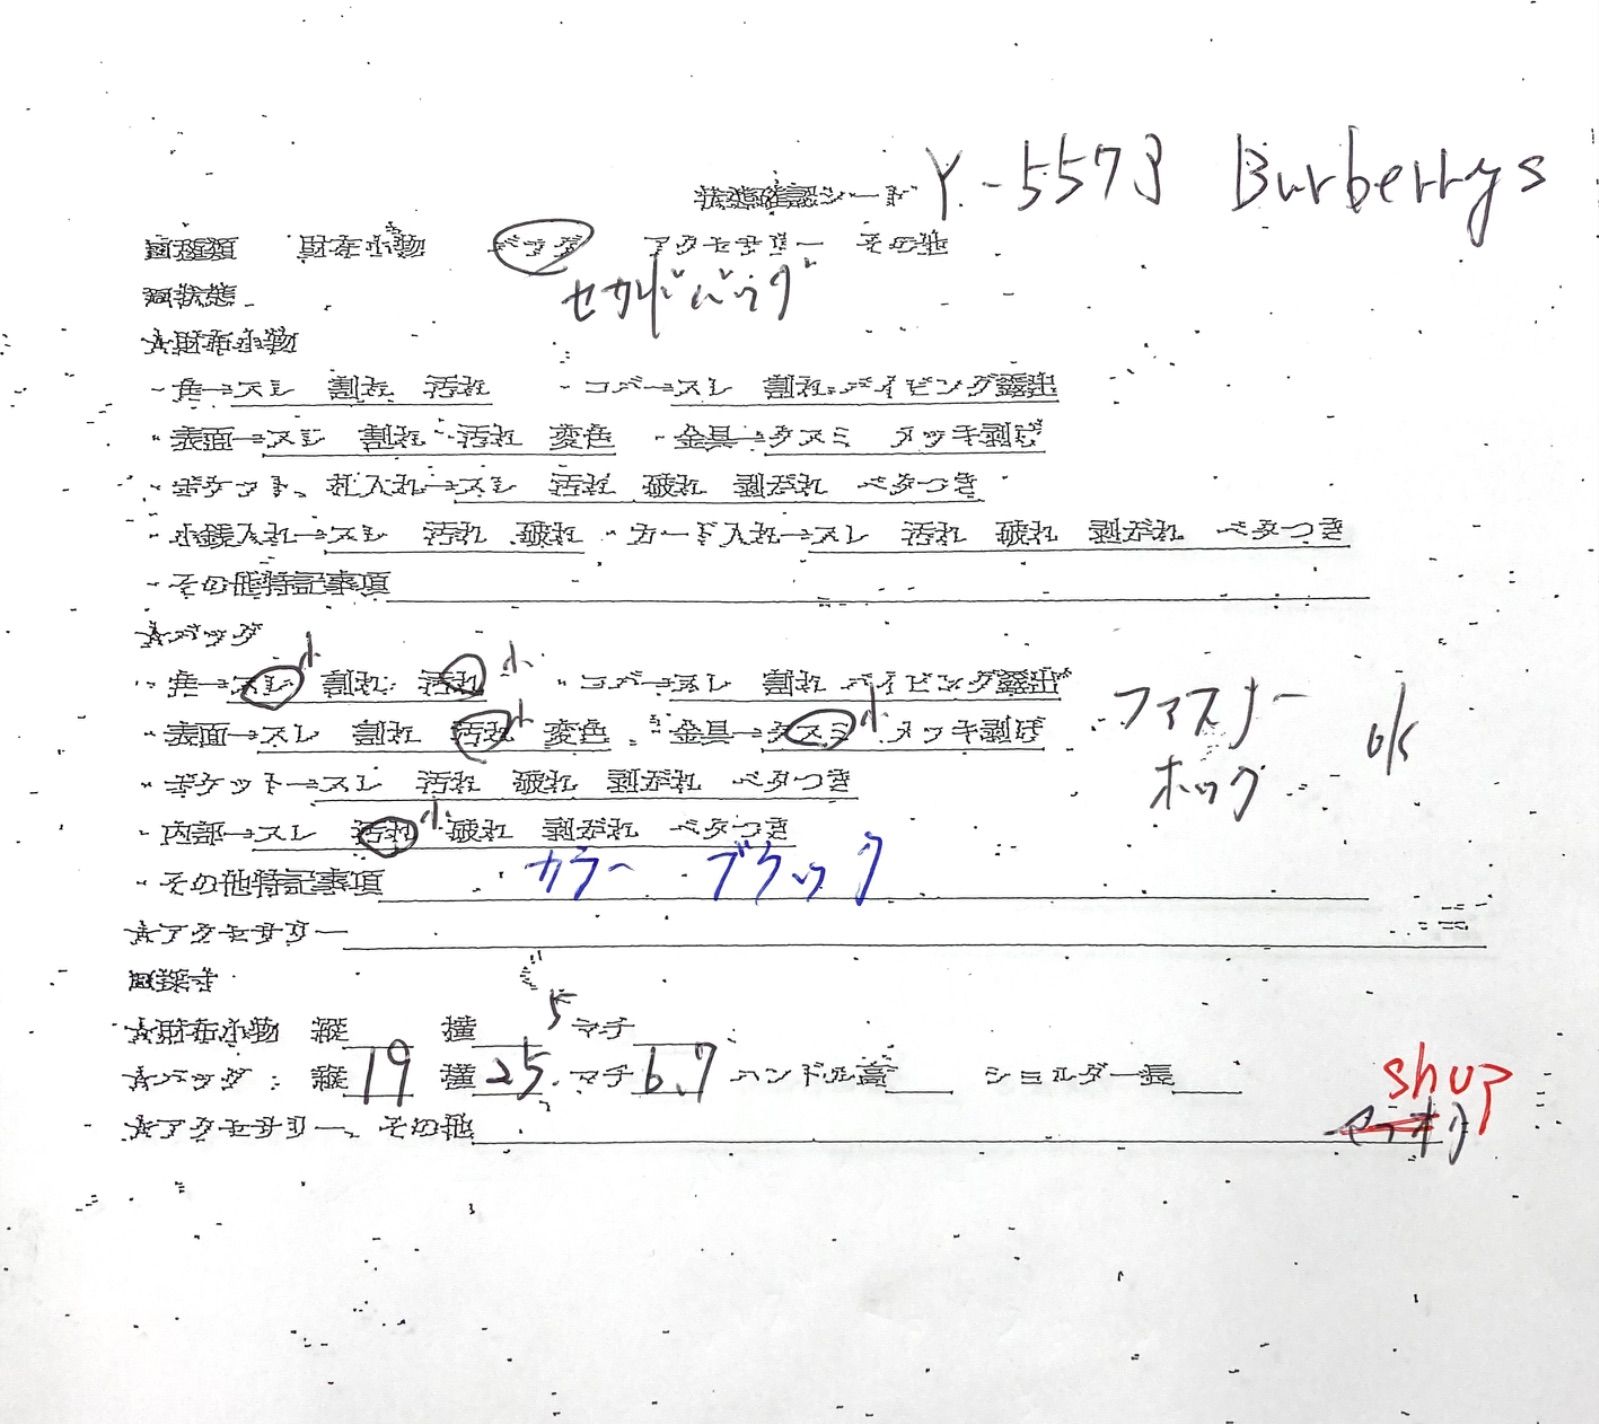 状態確認シート Y-5573 Burberrys
■種類 財布小物 バッグ アクセサリー その他
セカンドバッグ
■状態
☆財布小物
・角→スレ 割れ 汚れ ・コバ→スレ 割れ パイピング露出
・表面→スレ 割れ 汚れ 変色 ・金具→クスミ メッキ剥げ
・ポケット、札入れ→スレ 汚れ 破れ 剥がれ ベタつき
・小銭入れ→スレ 汚れ 破れ ・カード入れ→スレ 汚れ 破れ 剥がれ ベタつき
・その他特記事項
☆バッグ
・角→スレ小 割れ 汚れ小 ・コバ→スレ 割れ パイピング露出
・表面→スレ 割れ 汚れ小 変色 ・金具→クスミ小 メッキ剥げ ファスナー
ホック ok
・ポケット→スレ 汚れ 破れ 剥がれ ベタつき
・内部→スレ 汚れ小 破れ 剥がれ ベタつき
・その他特記事項 カラー ブラック
☆アクセサリー
■採寸
☆財布小物 縦 横 マチ
☆バッグ：縦19 横25.5 マチ6.7 ハンドル高 ショルダー長
shop
☆アクセサリー、その他